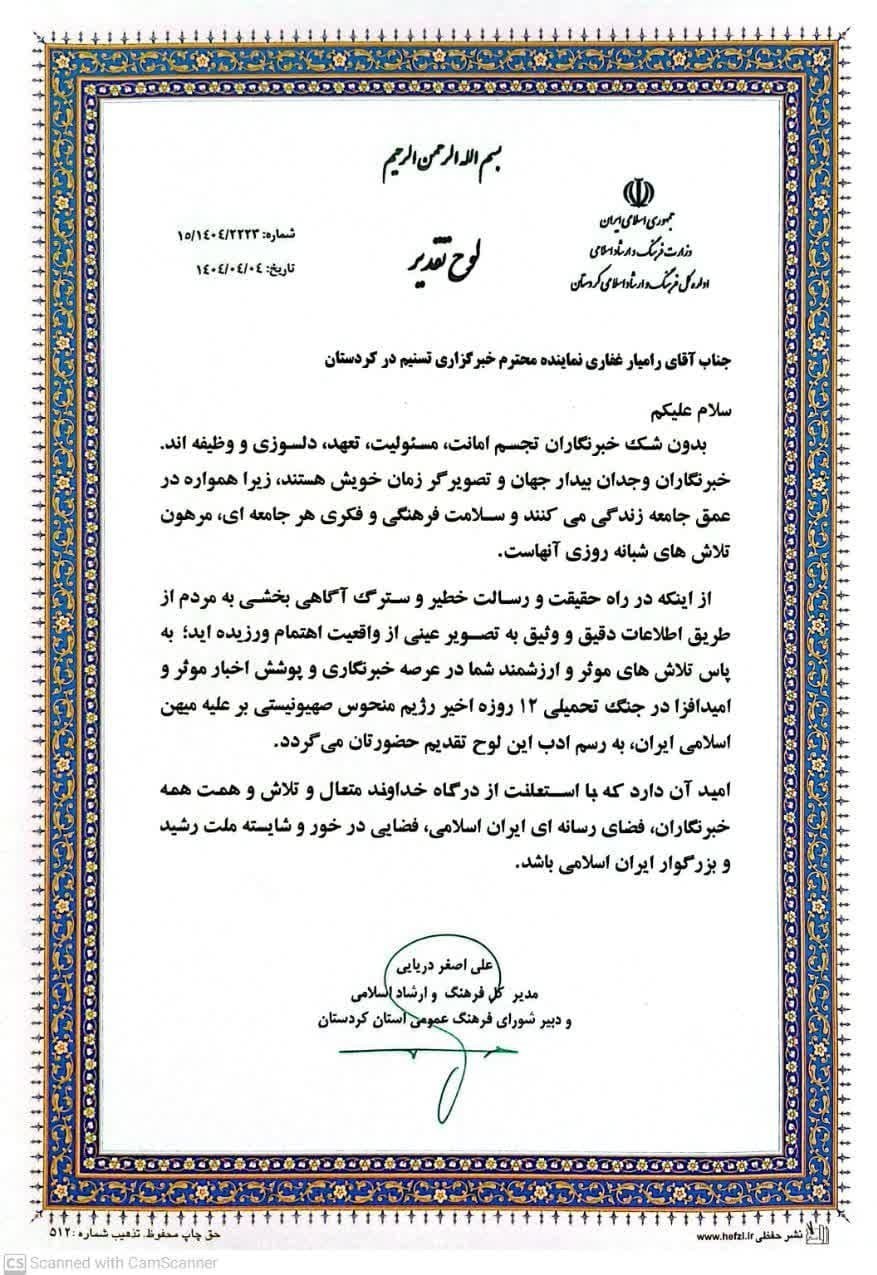 بسم الله الرحمن الرحیم
جمهوری اسلامی ایران
وزارت فرهنگ و ارشاد اسلامی
اداره کل فرهنگ و ارشاد اسلامی کردستان
لوح تقدیر
شماره: ۱۵/۱٤۰٤/۲۲۲۳
تاریخ: ۱٤۰٤/۰٤/۰٤
جناب آقای رامیار غفاری نماینده محترم خبرگزاری تسنیم در کردستان
سلام علیکم
بدون شک خبرنگاران تجسم امانت، مسئولیت، تعهد، دلسوزی و وظیفه اند.
خبرنگاران وجدان بیدار جهان و تصویرگر زمان خویش هستند، زیرا همواره در
عمق جامعه زندگی می کنند و سلامت فرهنگی و فکری هر جامعه ای، مرهون
تلاش های شبانه روزی آنهاست.
از اینکه در راه حقیقت و رسالت خطیر و سترگ آگاهی بخشی به مردم از
طریق اطلاعات دقیق و وثیق به تصویر عینی از واقعیت اهتمام ورزیده اید؛ به
پاس تلاش های موثر و ارزشمند شما در عرصه خبرنگاری و پوشش اخبار موثر و
امیدافزا در جنگ تحمیلی ۱۲ روزه اخیر رژیم منحوس صهیونیستی بر علیه میهن
اسلامی ایران، به رسم ادب این لوح تقدیم حضورتان می گردد.
امید آن دارد که با استعانت از درگاه خداوند متعال و تلاش و همت همه
خبرنگاران، فضای رسانه ای ایران اسلامی، فضایی در خور و شایسته ملت رشید
و بزرگوار ایران اسلامی باشد.
علی اصغر دریایی
مدیر کل فرهنگ و ارشاد اسلامی
و دبیر شورای فرهنگ عمومی استان کردستان
نشر حفظی www.hefzi.ir
حق چاپ محفوظ. تذهیب شماره :۵۱۲
CS Scanned with CamScanner